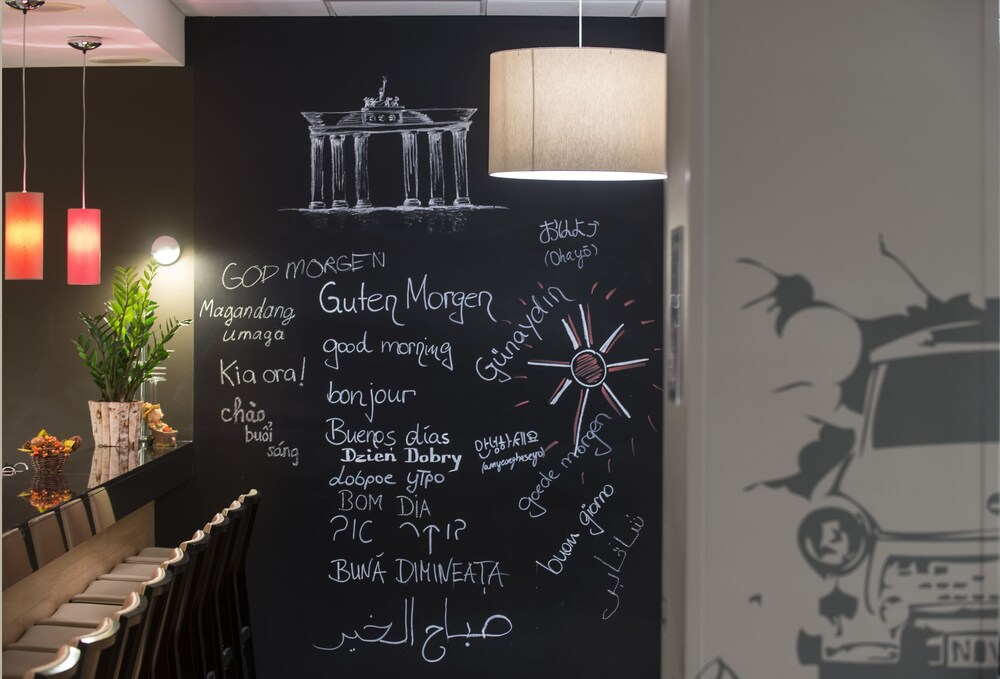 おはよう
(Ohayō)
GOD MORGEN
Magandang
umaga
Guten Morgen
Günaydin
good morning
Kia ora!
bonjour
chào
buổi
sáng
Buenos días
Dzień Dobry
доброе утро
안녕하세요
(annyeonghaseyo)
goede morgen
BOM DIA
buon giorno
BUNĂ DIMINEAȚA
صباح الخير